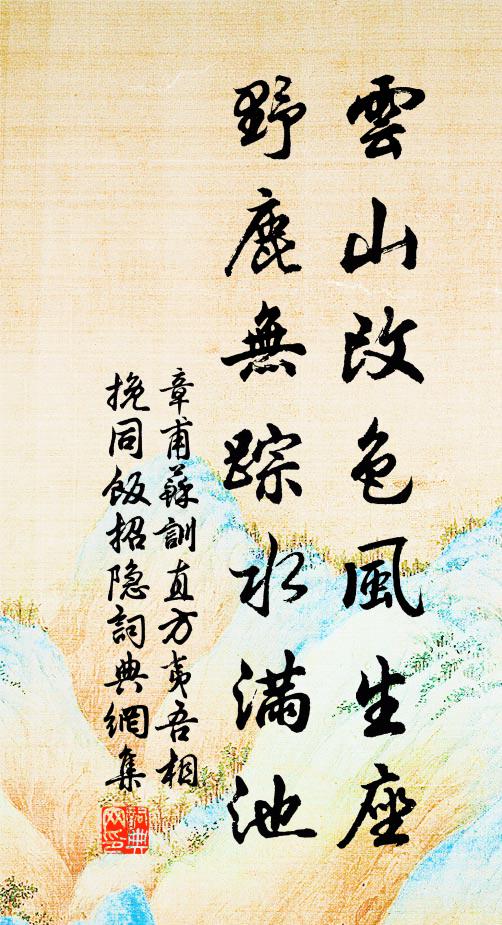 雲山改色風生座
野鹿無踪水滿池
章甫蘇訓直方夷吾相
挽同飯招隐詞典網集
詞典網印